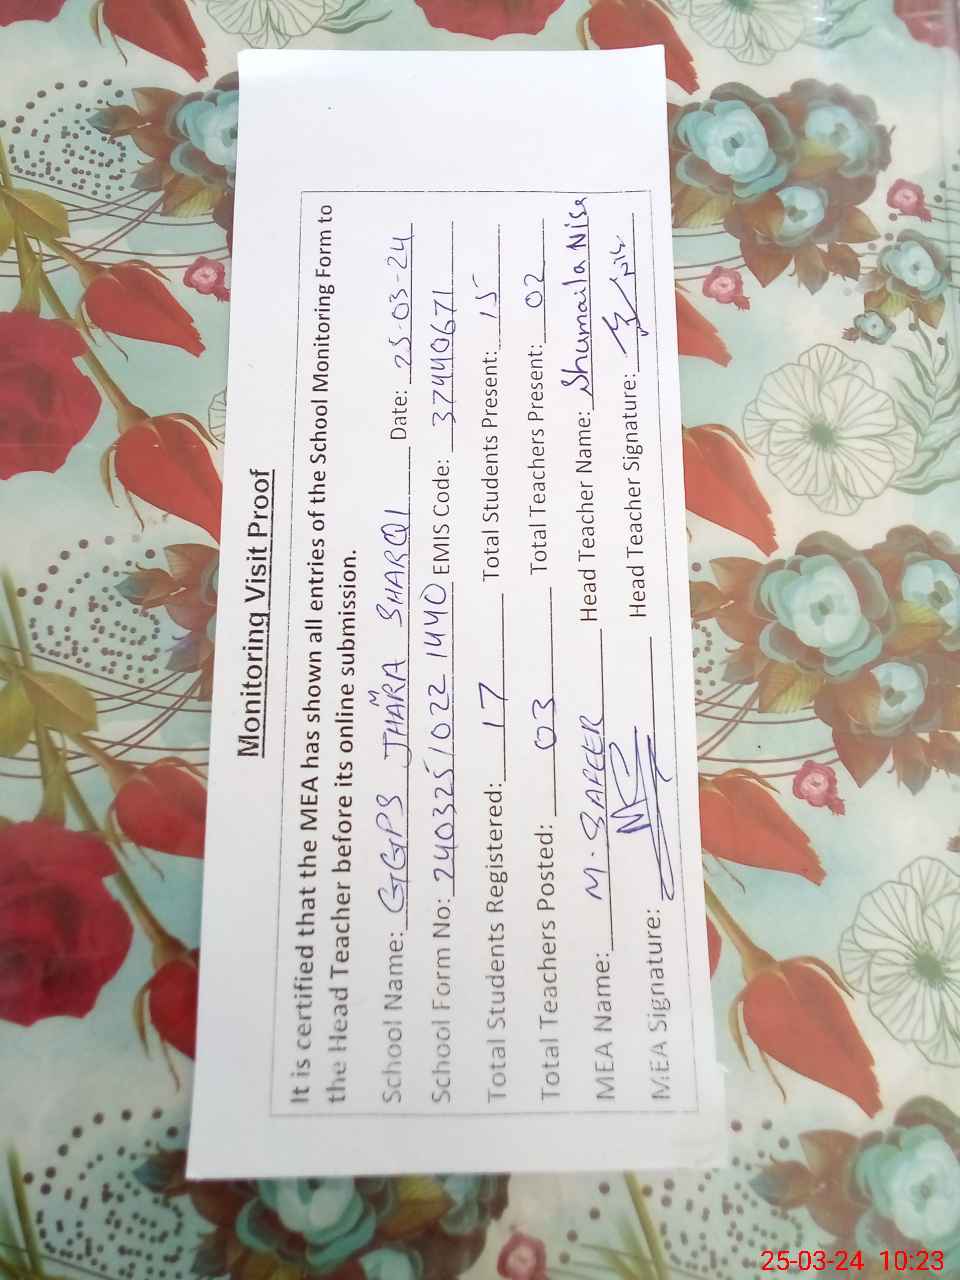 Monitoring Visit Proof
It is certified that the MEA has shown all entries of the School Monitoring Form to
the Head Teacher before its online submission.
School Name: GGPS JHARA SHARQI Date: 25-03-24
School Form No: 240325/022 1440 EMIS Code: 37440671
Total Students Registered: 17 Total Students Present: 15
Total Teachers Posted: 03 Total Teachers Present: 02
MEA Name: M. SAFEER Head Teacher Name: Shumaila Nisa
MEA Signature: Head Teacher Signature:
25-03-24 10:23